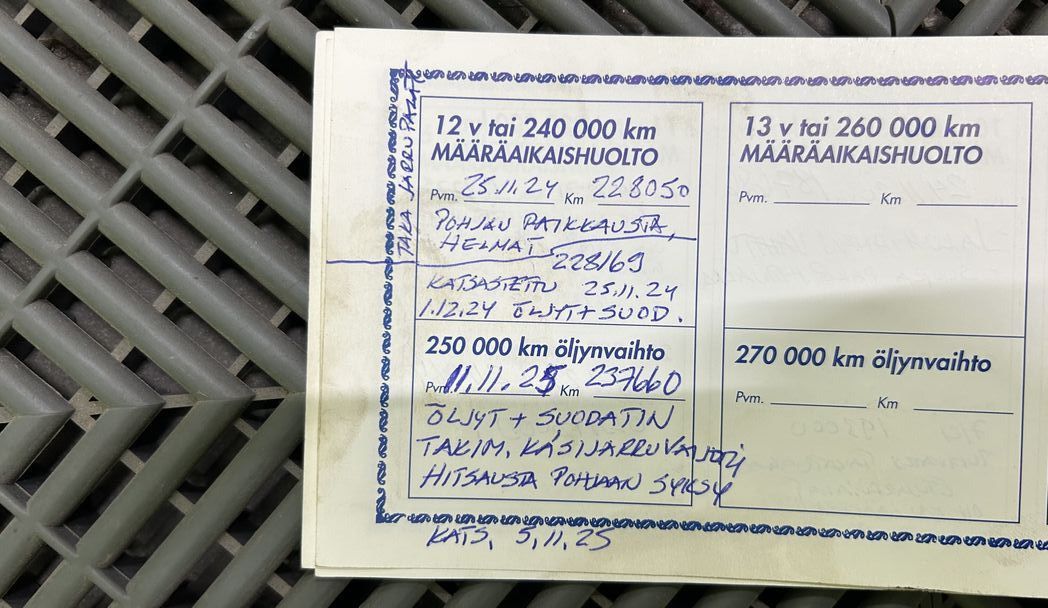 TAKA JARRUPALAT
12 v tai 240 000 km
MÄÄRÄAIKAISHUOLTO
Pvm. 25.11.24 Km 228050
POHJAN PAIKKAUSTA,
HELMAT
228169
KATSASTETTU 25.11.24
1.12.24 ÖLJYT + SUOD.
250 000 km öljynvaihto
Pvm. 11.11.25 Km 237660
ÖLJYT + SUODATIN
TAKIM. KÄSIJARRUVAIJERI
HITSAUSTA POHJAAN SYKSY
KATS. 5.11.25
13 v tai 260 000 km
MÄÄRÄAIKAISHUOLTO
Pvm. Km
270 000 km öljynvaihto
Pvm. Km